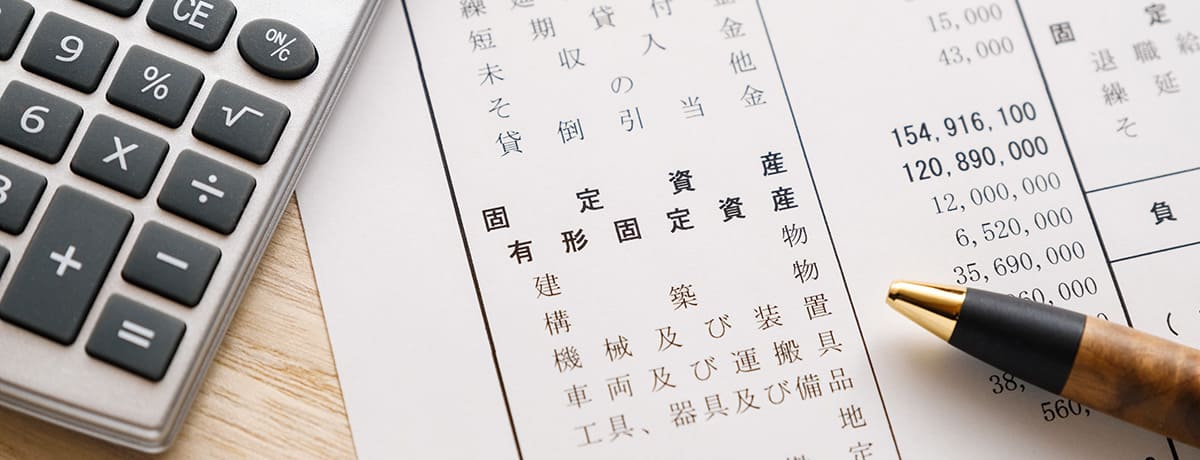 CE
9
ON/C
%
√
6
X
÷
+
−
=
短期貸付金
未収入金
その他
貸倒引当金
固定資産
有形固定資産
建物
構築物
機械及び装置
車両及び運搬具
工具、器具及び備品
地
定
15,000
43,000
154,916,100
120,890,000
12,000,000
6,520,000
35,690,000
60,000
38,
560,
固定
退職給
繰延
そ
負
(